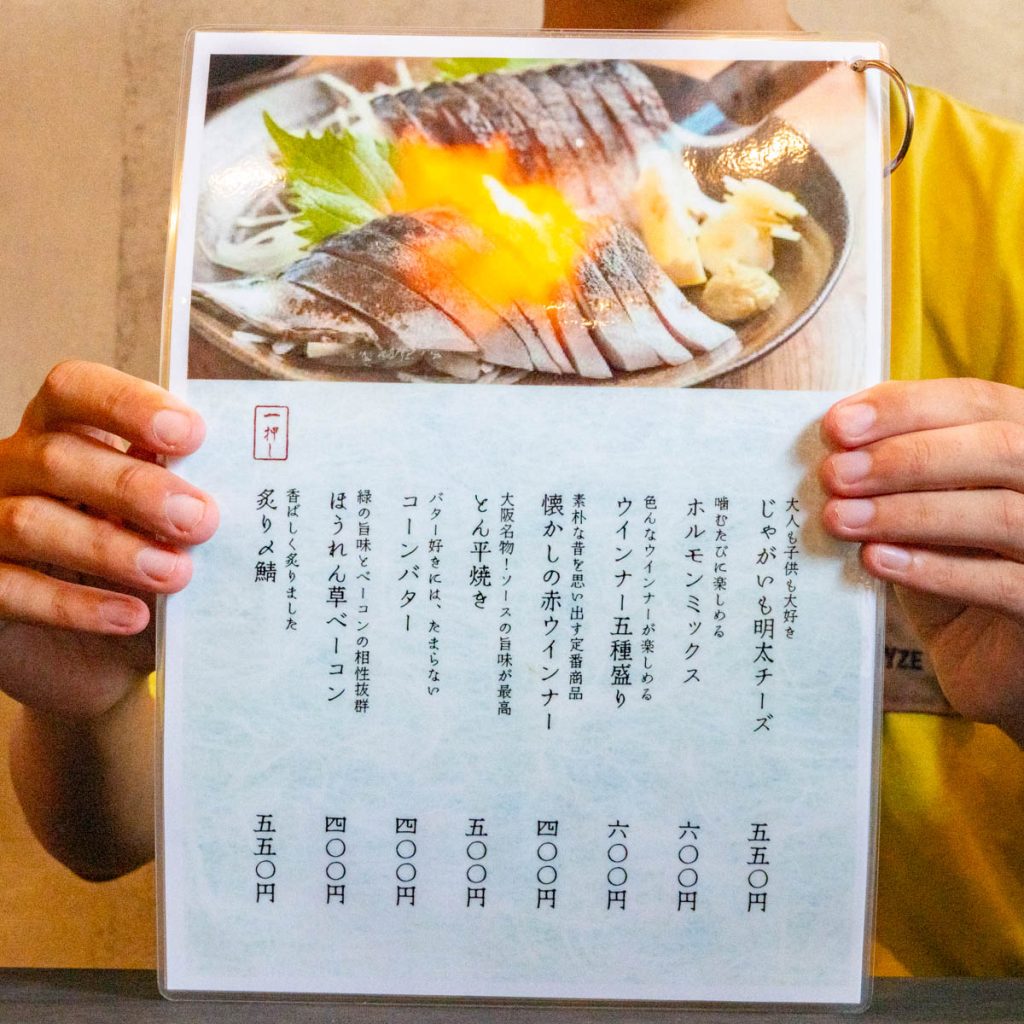 大人も子供も大好き
じゃがいも明太チーズ
五五〇円
噛むたびに楽しめる
ホルモンミックス
六〇〇円
色んなウインナーが楽しめる
ウインナー五種盛り
六〇〇円
素朴な昔を思い出す定番商品
懐かしの赤ウインナー
四〇〇円
大阪名物！ソースの旨味が最高
とん平焼き
五〇〇円
バター好きには、たまらない
コーンバター
四〇〇円
緑の旨味とベーコンの相性抜群
ほうれん草ベーコン
四〇〇円
一押し
香ばしく炙りました
炙り〆鯖
五五〇円
YZE